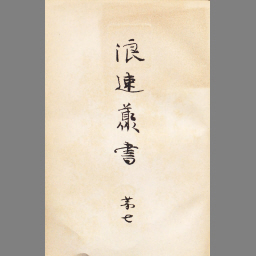 浪速叢書
第七